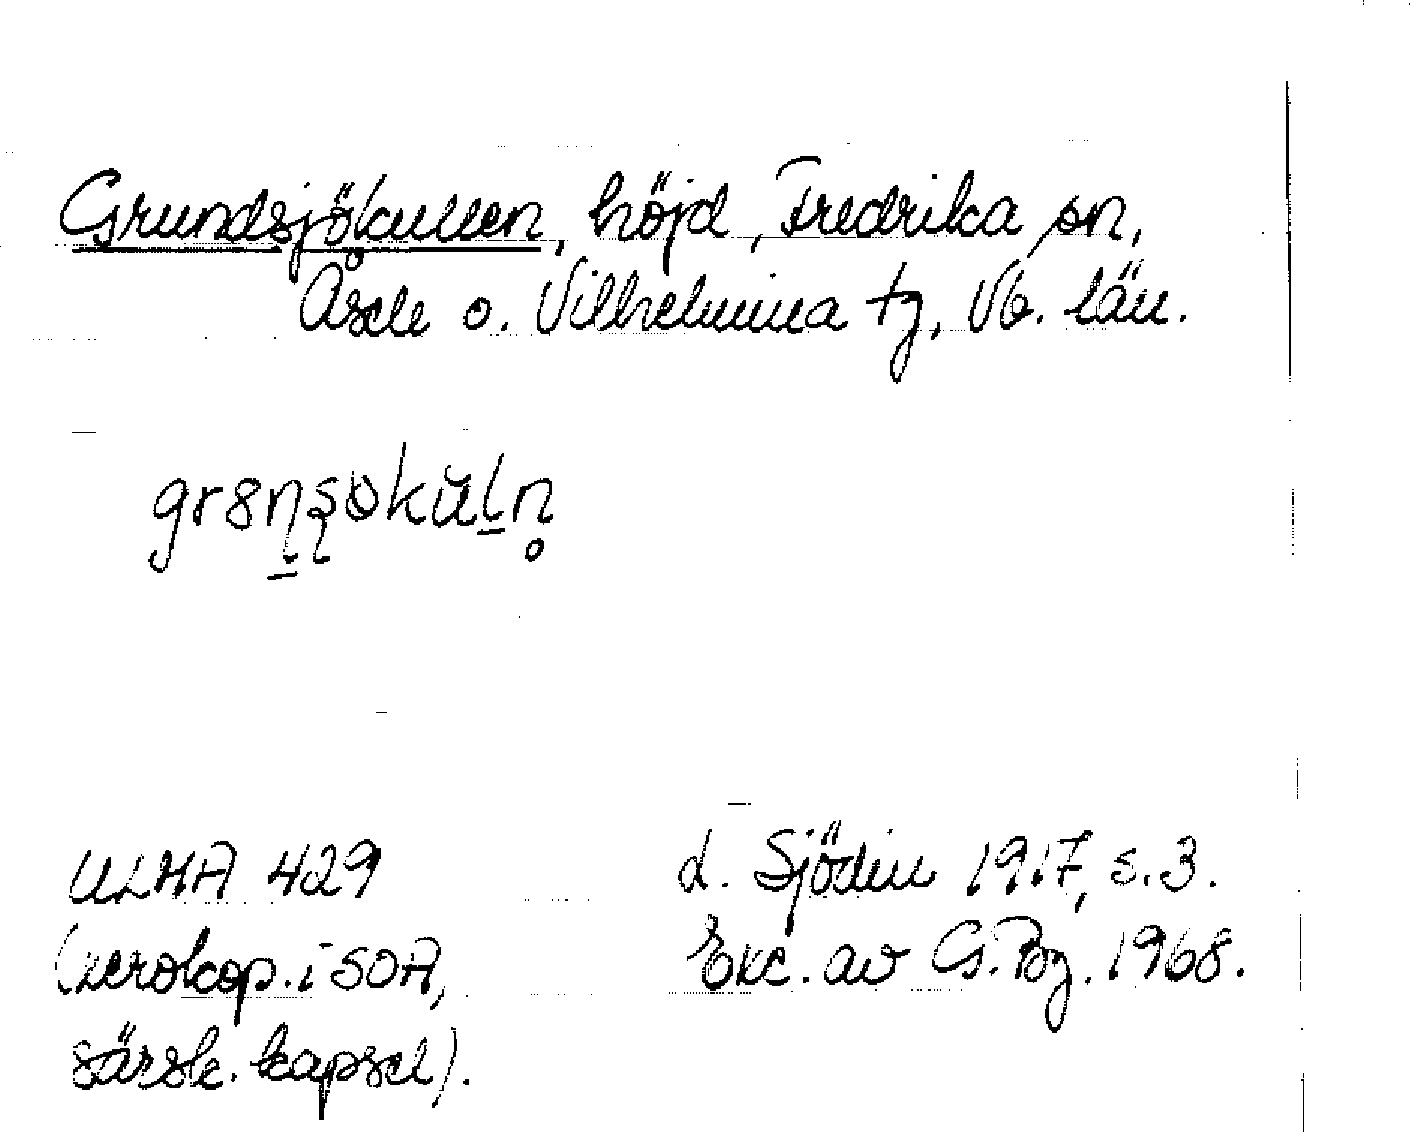 Grundsjökullen, höjd, Fredrika sn,
Åsele o. Vilhelmina tg, Vb. län.
gr8ṇʂɷkŭḻn̥
ULMA 429
(xerokop. i SOA,
särsk. kapsel).
L. Sjödin 1917, s. 3.
Exc. av G. Bg. 1968.